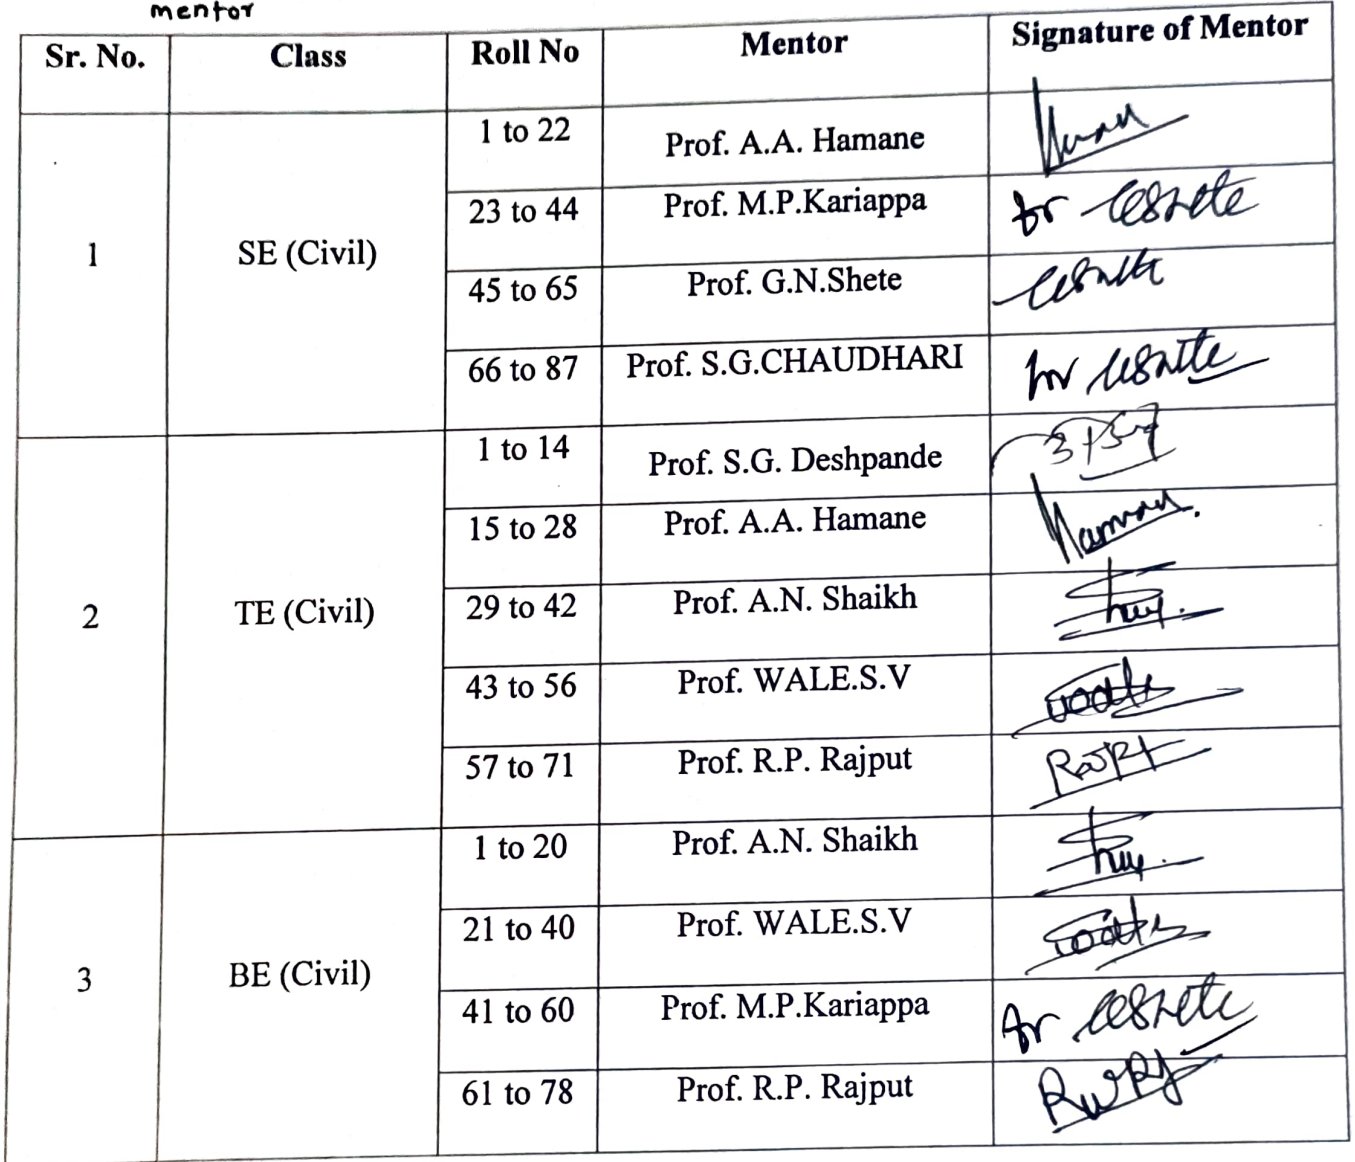 mentor
Sr. No. Class Roll No Mentor Signature of Mentor
1 SE (Civil) 1 to 22 Prof. A.A. Hamane
23 to 44 Prof. M.P.Kariappa for
45 to 65 Prof. G.N.Shete
66 to 87 Prof. S.G.CHAUDHARI for
2 TE (Civil) 1 to 14 Prof. S.G. Deshpande
15 to 28 Prof. A.A. Hamane
29 to 42 Prof. A.N. Shaikh
43 to 56 Prof. WALE.S.V
57 to 71 Prof. R.P. Rajput
3 BE (Civil) 1 to 20 Prof. A.N. Shaikh
21 to 40 Prof. WALE.S.V
41 to 60 Prof. M.P.Kariappa for
61 to 78 Prof. R.P. Rajput